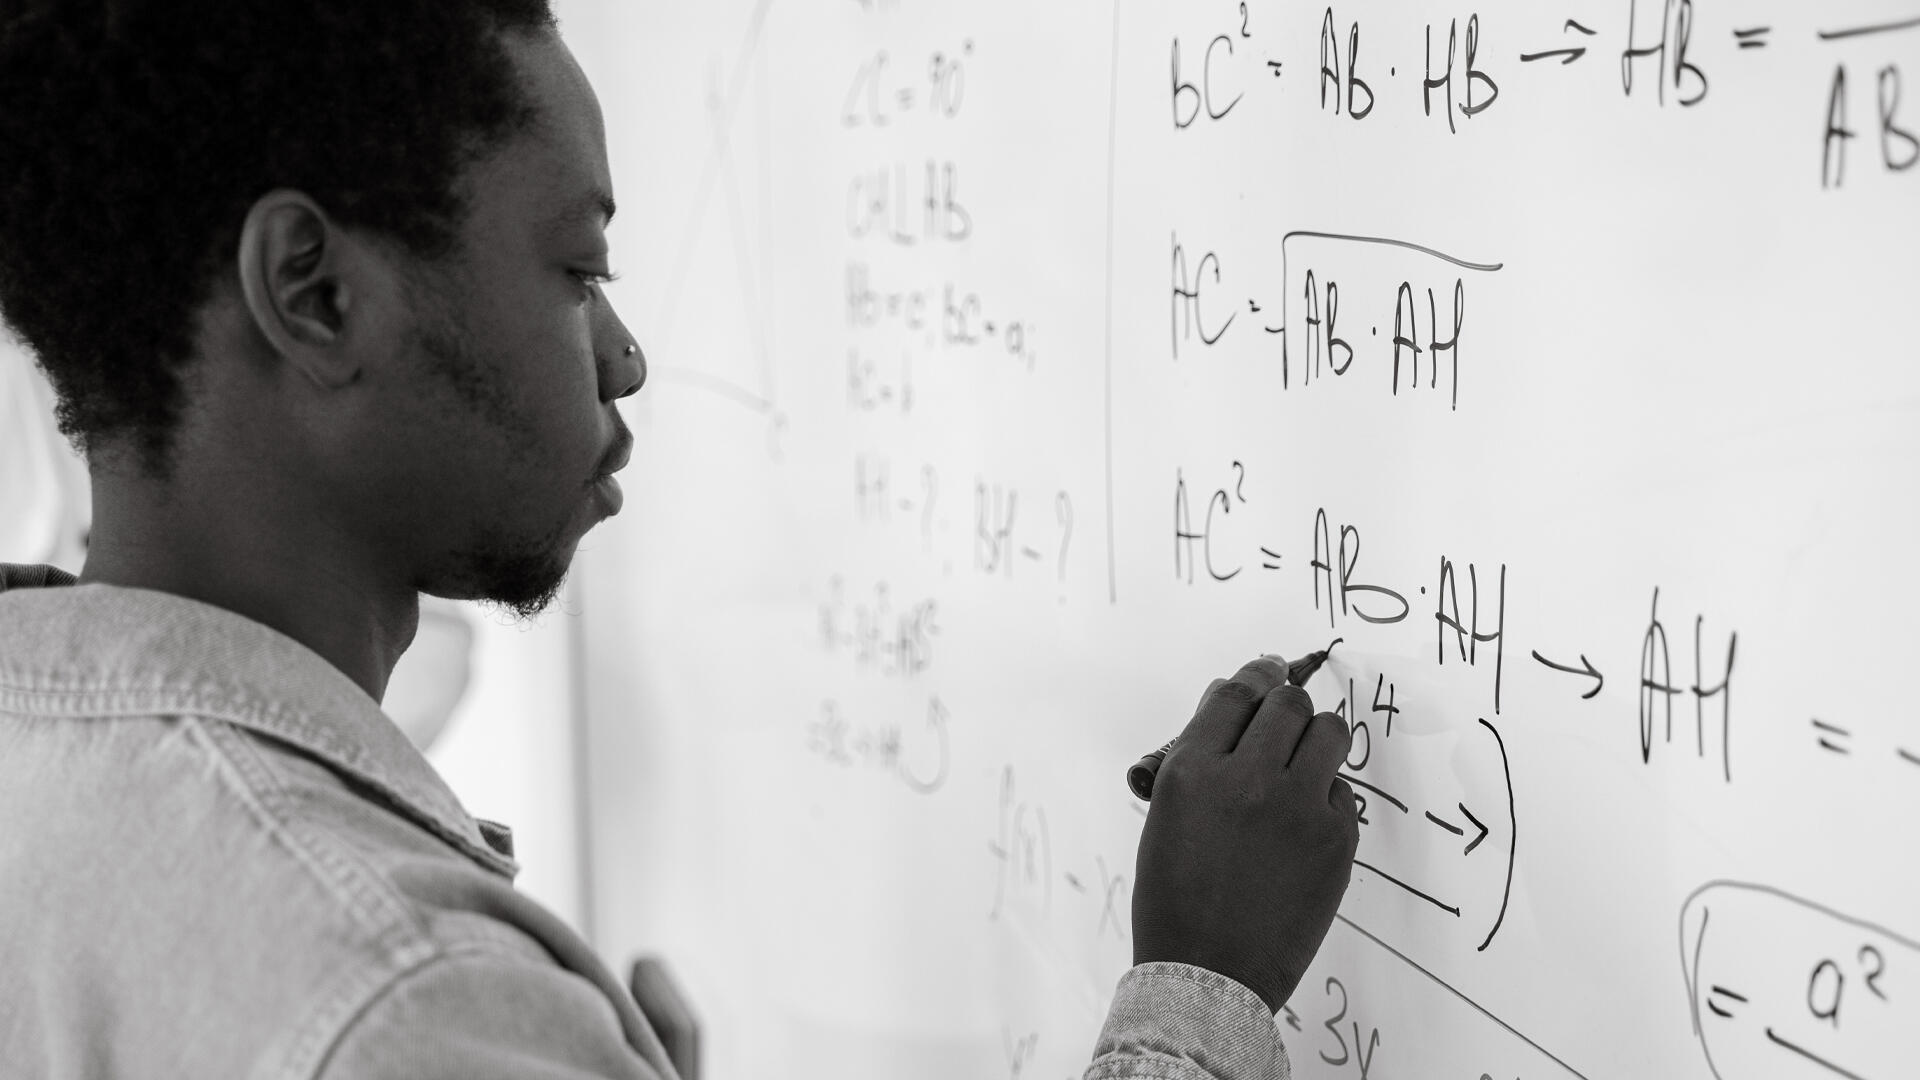 ∠C = 90°
CH⊥AB
AB = c; BC = a;
AC = b
AH - ? BH - ?
f(x) - x
BC² = AB · HB → HB =
AB
AC = √AB · AH
AC² = AB · AH → AH =
b⁴
2 →
= a²
= 3y